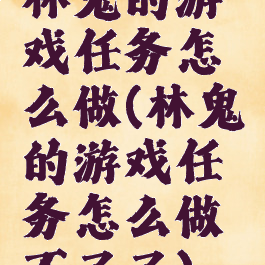 林鬼的游
戏任务怎
么做(林鬼
的游戏任
务怎么做
不了了)